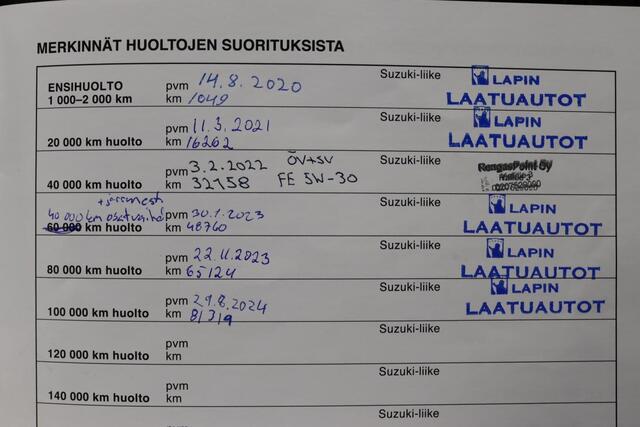 MERKINNÄT HUOLTOJEN SUORITUKSISTA
ENSIHUOLTO pvm 14.8.2020 Suzuki-liike LAPIN
1 000–2 000 km km 1049 LAATUAUTOT
pvm 11.3.2021 Suzuki-liike LAPIN
20 000 km huolto km 16262 LAATUAUTOT
pvm 3.2.2022 ÖV+SV Suzuki-liike RengasPoint Oy
40 000 km huolto km 32758 FE 5W-30
40 000 km pvm 30.1.2023 Suzuki-liike LAPIN
60 000 km huolto km 48760 LAATUAUTOT
pvm 22.11.2023 Suzuki-liike LAPIN
80 000 km huolto km 65124 LAATUAUTOT
pvm 29.8.2024 Suzuki-liike LAPIN
100 000 km huolto km 81319 LAATUAUTOT
pvm Suzuki-liike
120 000 km huolto km
pvm Suzuki-liike
140 000 km huolto km
pvm Suzuki-liike